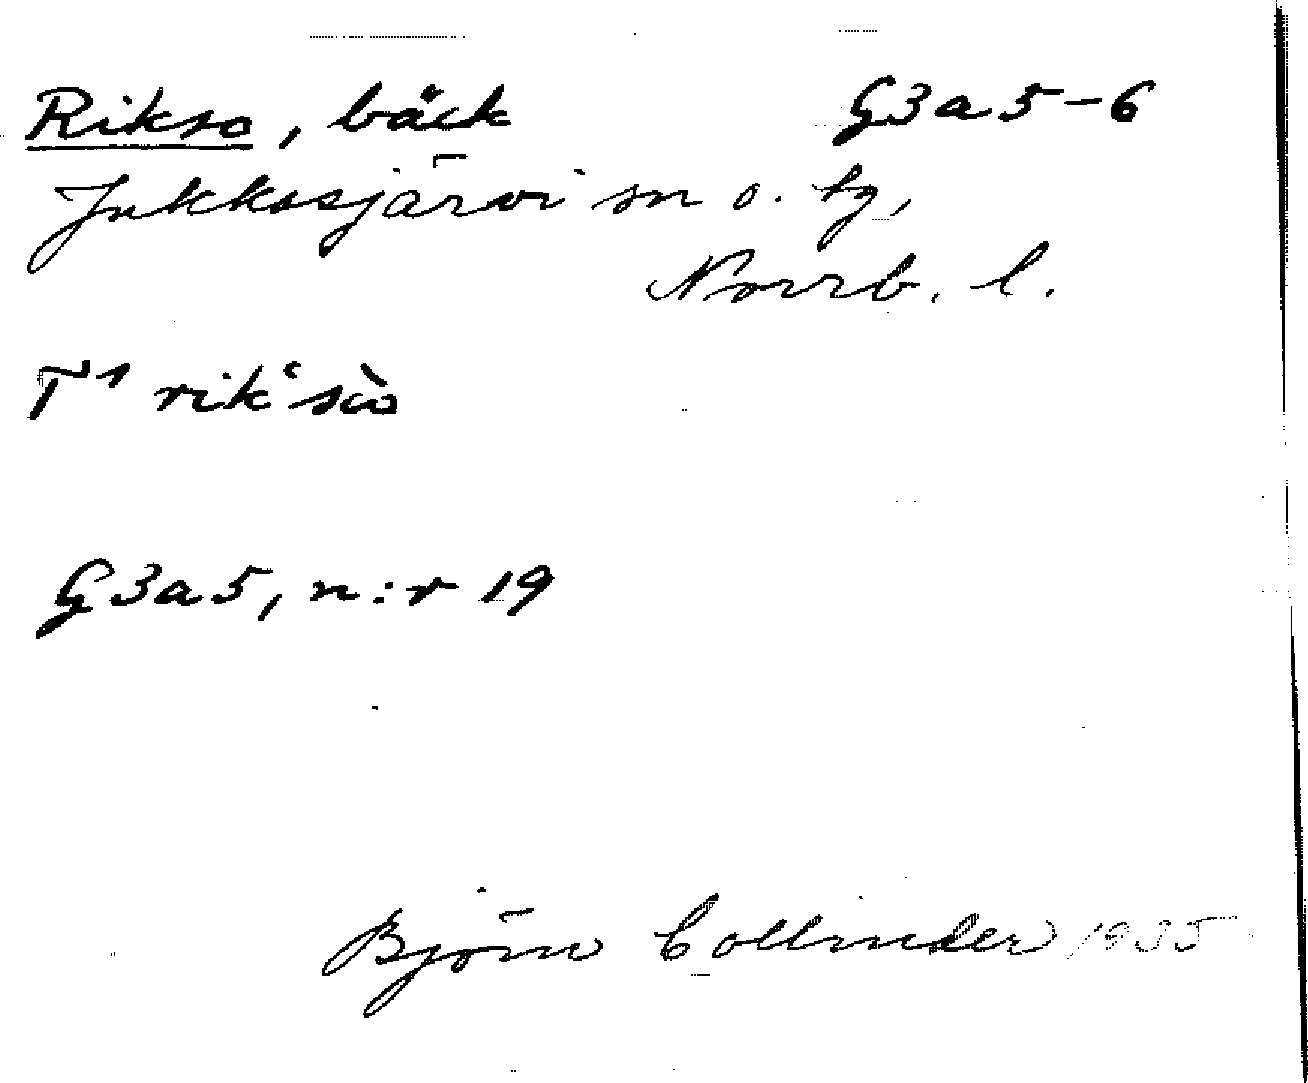 Rikso, bäck G3a5-6
Jukkasjärvi sn o. tg,
Norrb. l.
T¹ rik‘sò
G3a5, n:r 19
Björn Collinder 1935